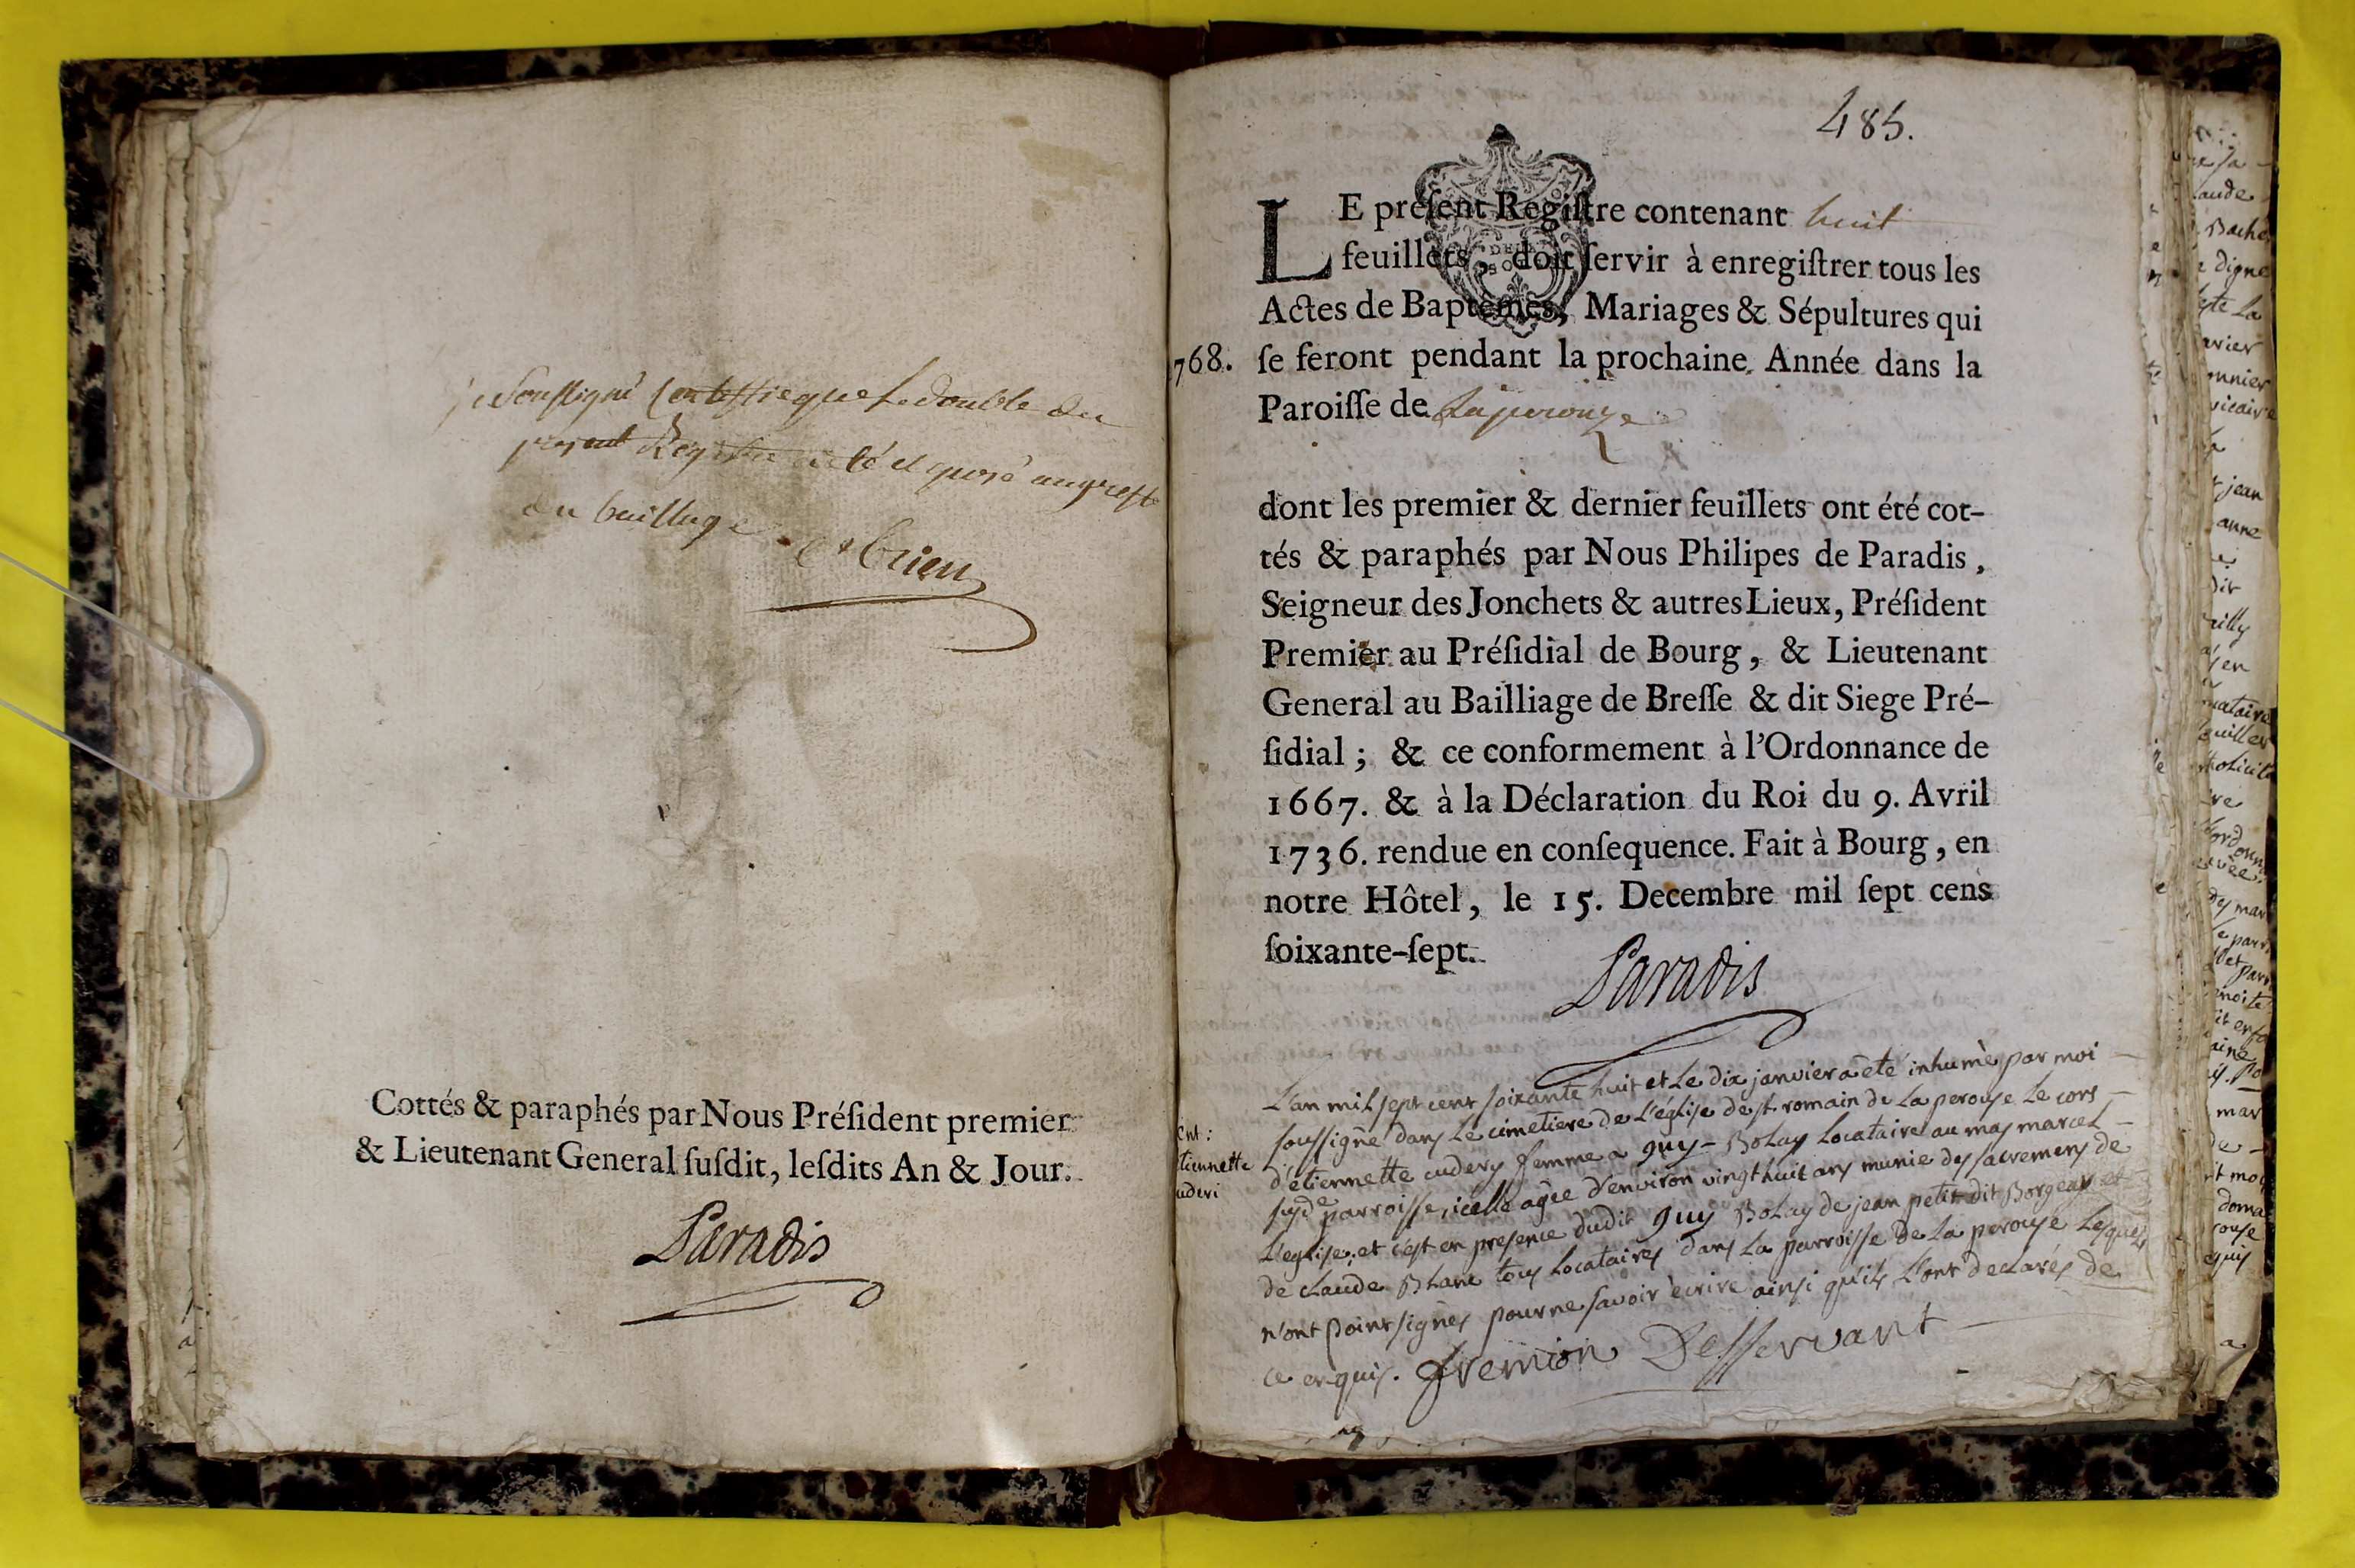 je soussigné certiffie que le double du
present Registre a eté deposé au greffe
du bailliage
Cottés & paraphés par Nous Préſident premier
& Lieutenant General ſuſdit, leſdits An & Jour.
Paradis
485.
LE préſent Regiſtre contenant huit
feuillets, doit ſervir à enregiſtrer tous les
Actes de Baptêmes, Mariages & Sépultures qui
768. ſe feront pendant la prochaine Année dans la
Paroiſſe de Laperouze
dont les premier & dernier feuillets ont été cot-
tés & paraphés par Nous Philipes de Paradis,
Seigneur des Jonchets & autres Lieux, Préſident
Premier au Préſidial de Bourg, & Lieutenant
General au Bailliage de Breſſe & dit Siege Pré-
ſidial; & ce conformement à l'Ordonnance de
1667. & à la Déclaration du Roi du 9. Avril
1736. rendue en conſequence. Fait à Bourg, en
notre Hôtel, le 15. Decembre mil ſept cens
ſoixante-ſept.
Paradis
L'an mil sept cent soixante huit et Le dix janvier a èté inhumè par moi
soussignè dans Le cimetiere de L'église de st romain de La perouse Le cors
ent:
tiennette
uderi
d'etiennette cudery femme a guy Bolay Locataire au mas marcel
susde parroisse, icelle agèe d'environ vingt huit ans munie des sacremens de
L'eglise; et c'est en presence dudit guy Bolay de jean petit dit Borgeay et
de claude Blanc tous Locataires dans La parroisse de La perouse Lesquels
n'ont point signès pour ne savoir ècrire ainsi qu'ils L'ont declarés de
ce enquis. fremion Desservant